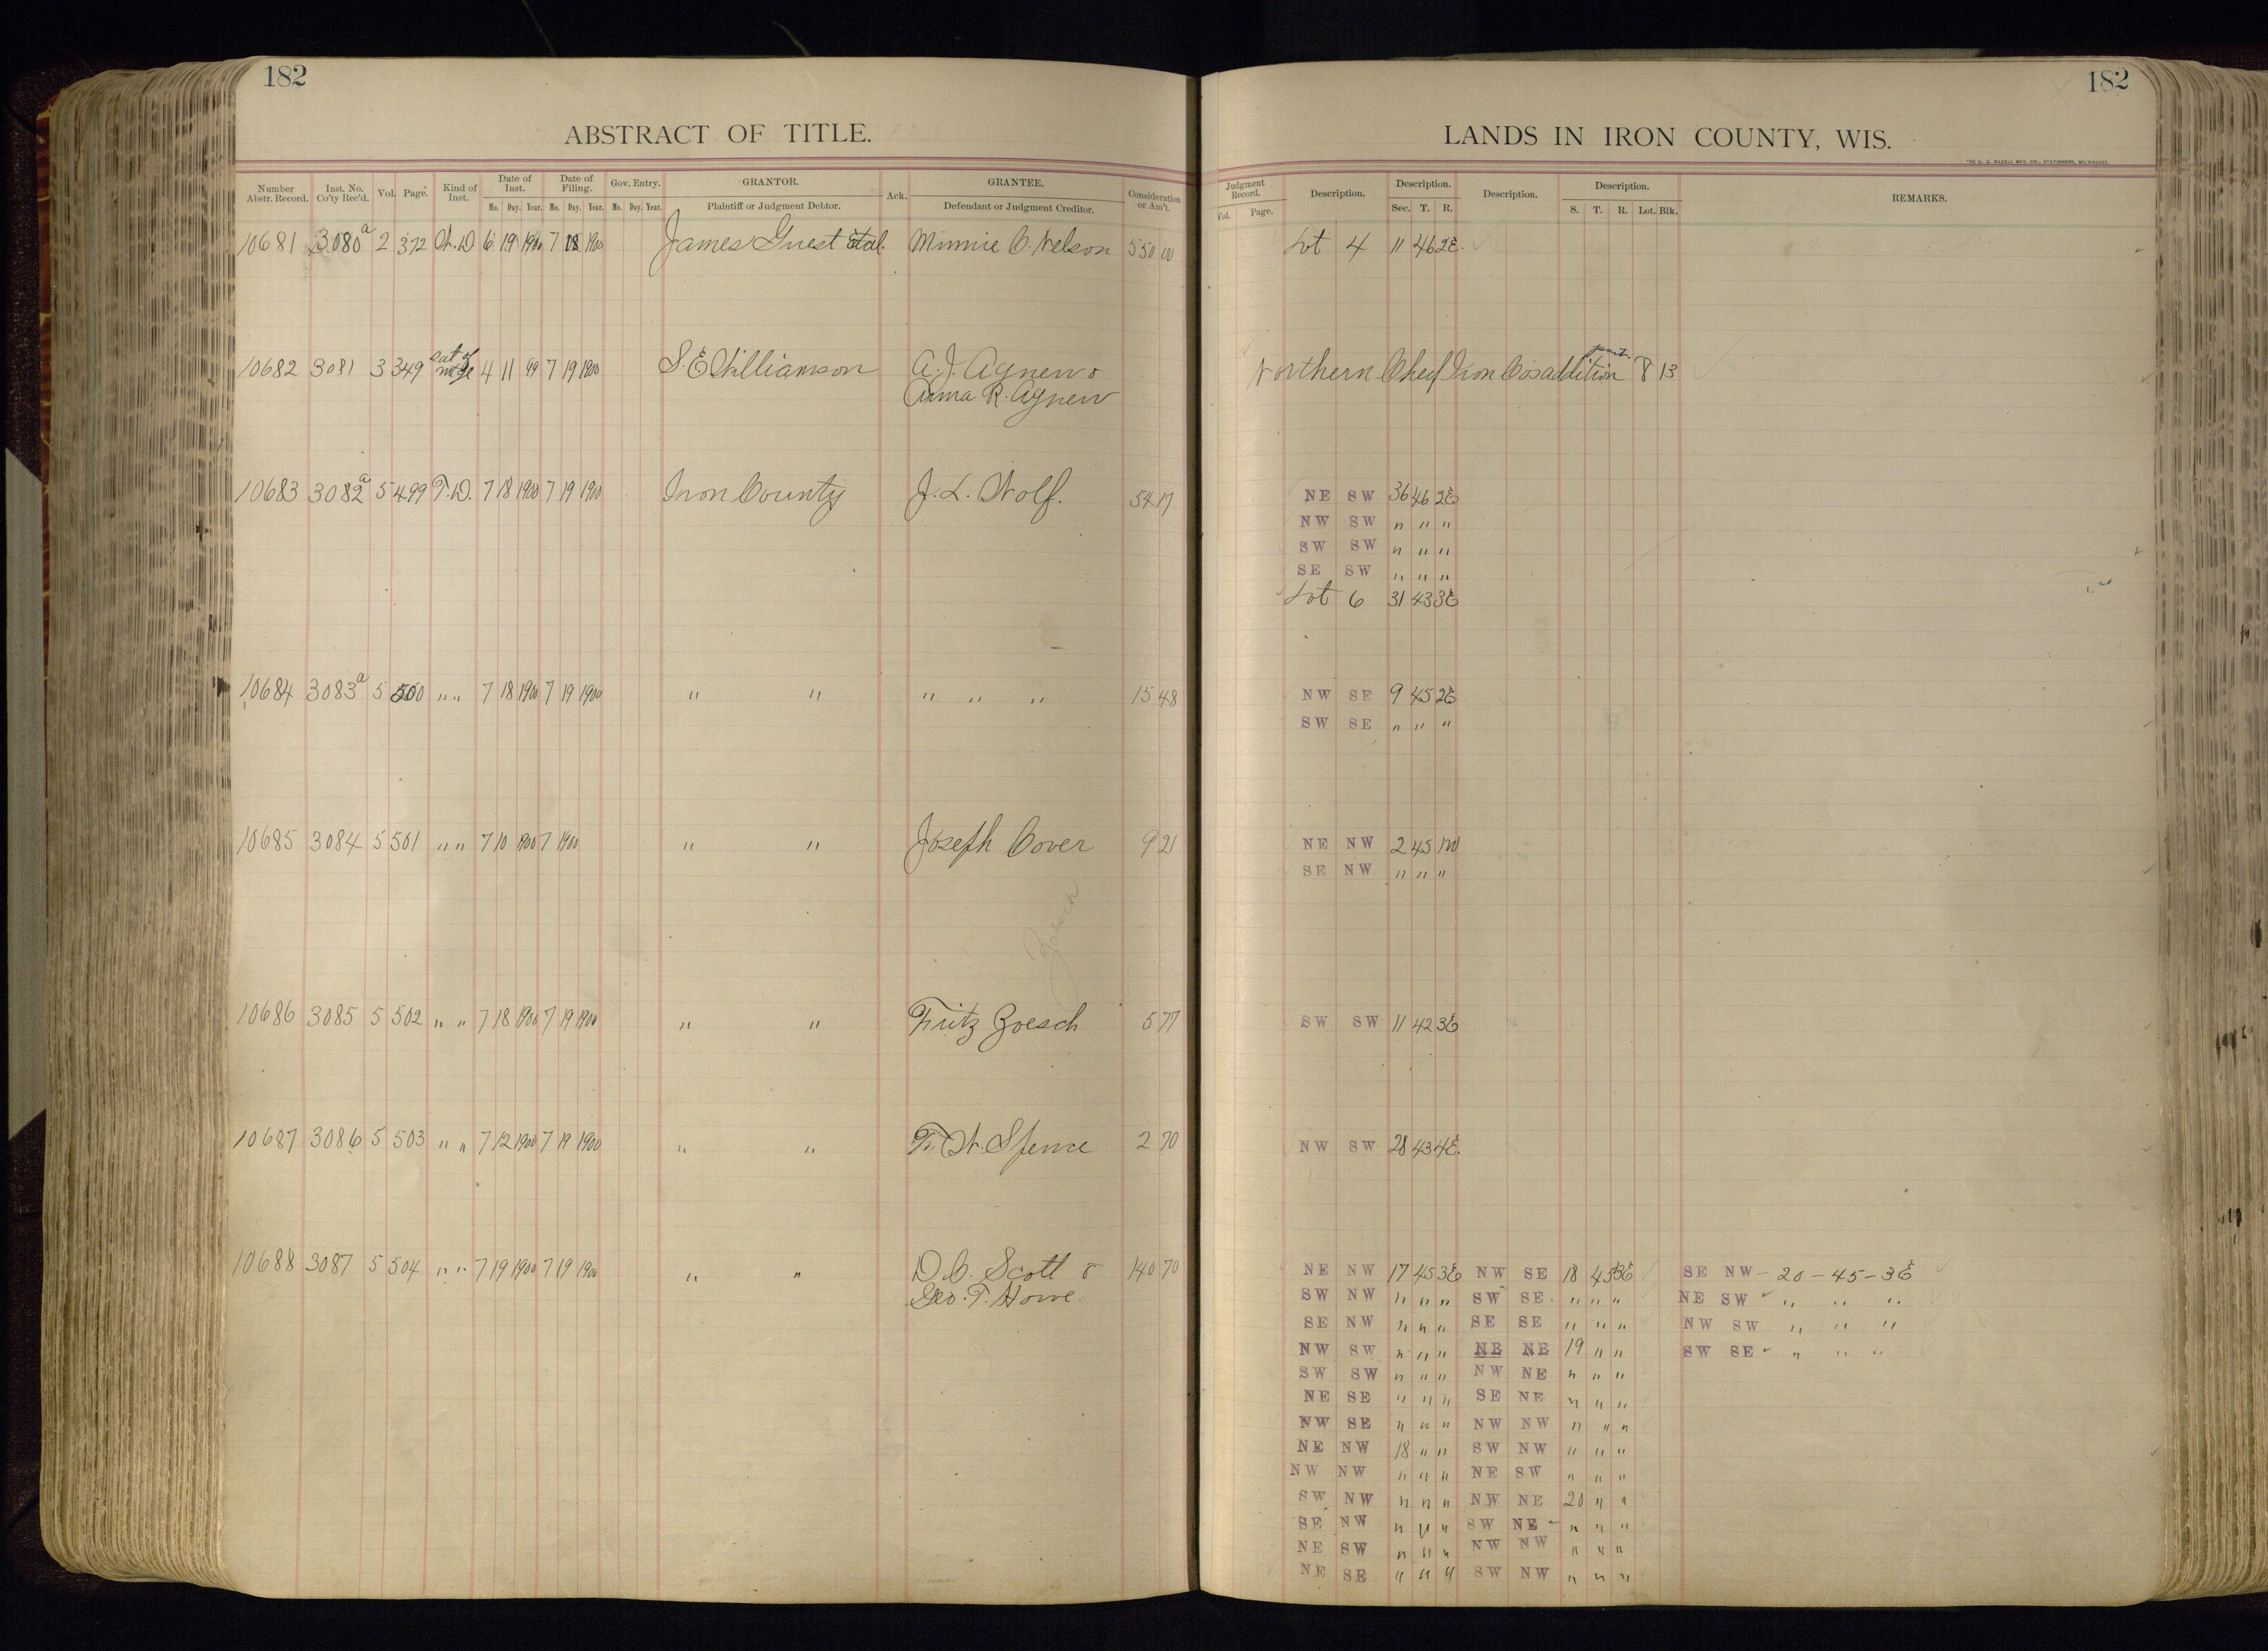 182
ABSTRACT OF TITLE.
Number Abstr. Record. Inst. No. Co'ty Rec'd. Vol. Page. Kind of Inst. Date of Inst. Date of Filing. Gov. Entry. GRANTOR. Ack. GRANTEE. Consideration or Am't.
Mo. Day. Year. Mo. Day. Year. Mo. Day. Year. Plaintiff or Judgment Debtor. Defendant or Judgment Creditor.
10681 3080a 2 372 W.D 6 19 1900 7 18 1900 James Guest et al. Minnie C. Nelson 550 00
10682 3081 3 349 sat of mtge 4 11 99 7 19 1900 S. E. Williamson A. J. Agnew &
Anna R. Agnew
10683 3082a 5 499 T.D. 7 18 1900 7 19 1900 Iron County J. L. Wolf. 54 17
10684 3083a 5 500 " " 7 18 1900 7 19 1900 " " " " " 15 48
10685 3084 5 501 " " 7 10 1900 7 1900 " " Joseph Cover 9 21
Zoesch
10686 3085 5 502 " " 7 18 1900 7 19 1900 " " Fritz Zoesch 5 77
10687 3086 5 503 " " 7 12 1900 7 19 1900 " " T. W. Spence 2 70
10688 3087 5 504 " " 7 19 1900 7 19 1900 " " D. C. Scott & 140 70
Geo. T. Howe.
182
LANDS IN IRON COUNTY, WIS.
THE H. G. RAZALL MFG. CO., STATIONERS, MILWAUKEE.
Judgment Record. Description. Description. Description. Description. REMARKS.
Vol. Page. Sec. T. R. S. T. R. Lot. Blk.
Lot 4 11 46 2E.
part.
Northern Chief Iron Cos addition 8 13
NE SW 36 46 2E
NW SW " " "
SW SW " " "
SE SW " " "
Lot 6 31 43 3E
NW SE 9 45 2E
SW SE " " "
NE NW 2 45 1W
SE NW " " "
SW SW 11 42 3E
NW SW 28 43 4E.
NE NW 17 45 3E NW SE 18 45 3E SE NW - 20 - 45 - 3E
SW NW " " " SW SE " " " NE SW " " "
SE NW " " " SE SE " " " NW SW " " "
NW SW " " " NE NE 19 " " SW SE " " "
SW SW " " " NW NE " " "
NE SE " " " SE NE " " "
NW SE " " " NW NW " " "
NE NW 18 " " SW NW " " "
NW NW " " " NE SW " " "
SW NW " " " NW NE 20 " "
SE NW " " " SW NE " " "
NE SW " " " NW NW " " "
NE SE " " " SW NW " " "